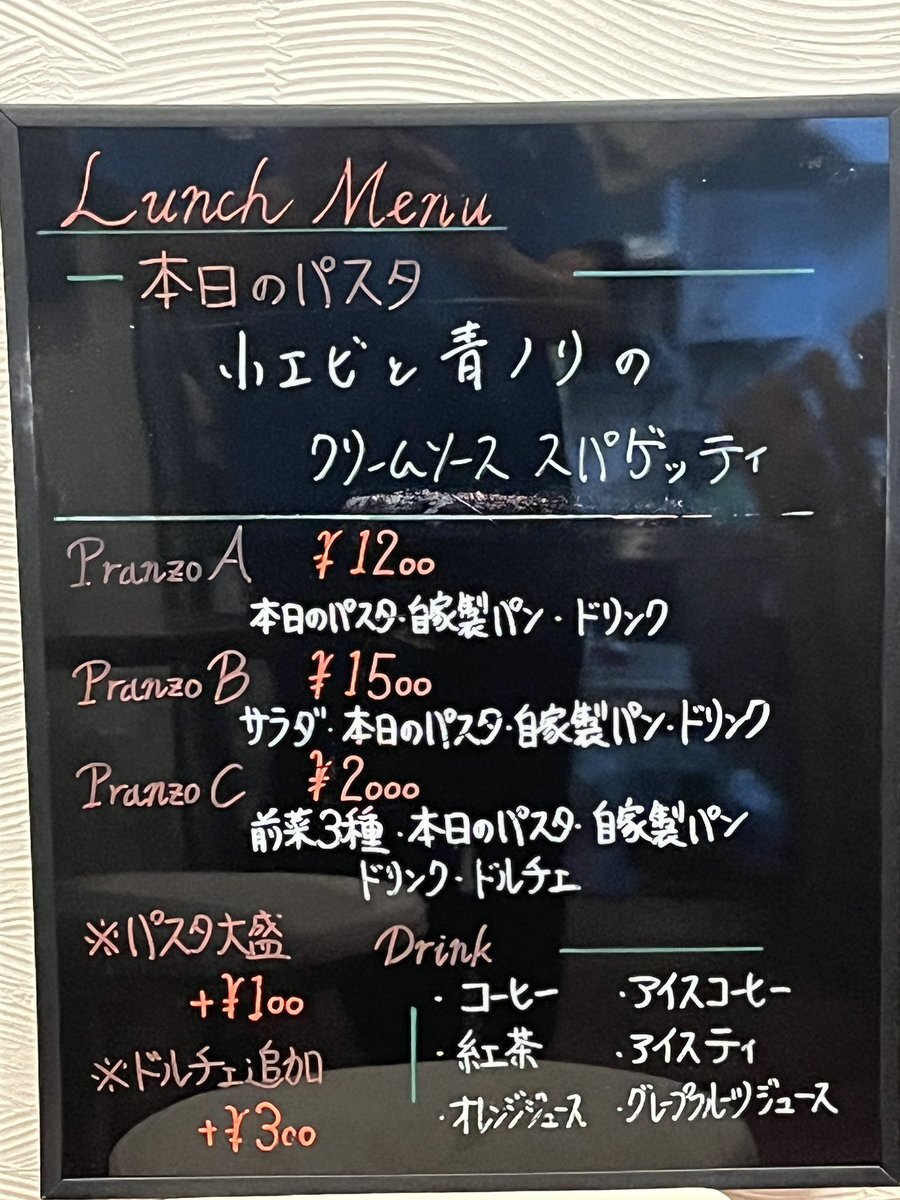 Lunch Menu
本日のパスタ
小エビと青ノリの
クリームソース スパゲッティ
Pranzo A ¥1200
本日のパスタ・自家製パン・ドリンク
Pranzo B ¥1500
サラダ・本日のパスタ・自家製パン・ドリンク
Pranzo C ¥2000
前菜3種・本日のパスタ・自家製パン
ドリンク・ドルチェ
※パスタ大盛
+¥100
※ドルチェ追加
+¥300
Drink
・コーヒー ・アイスコーヒー
・紅茶 ・アイスティ
・オレンジジュース ・グレープフルーツジュース